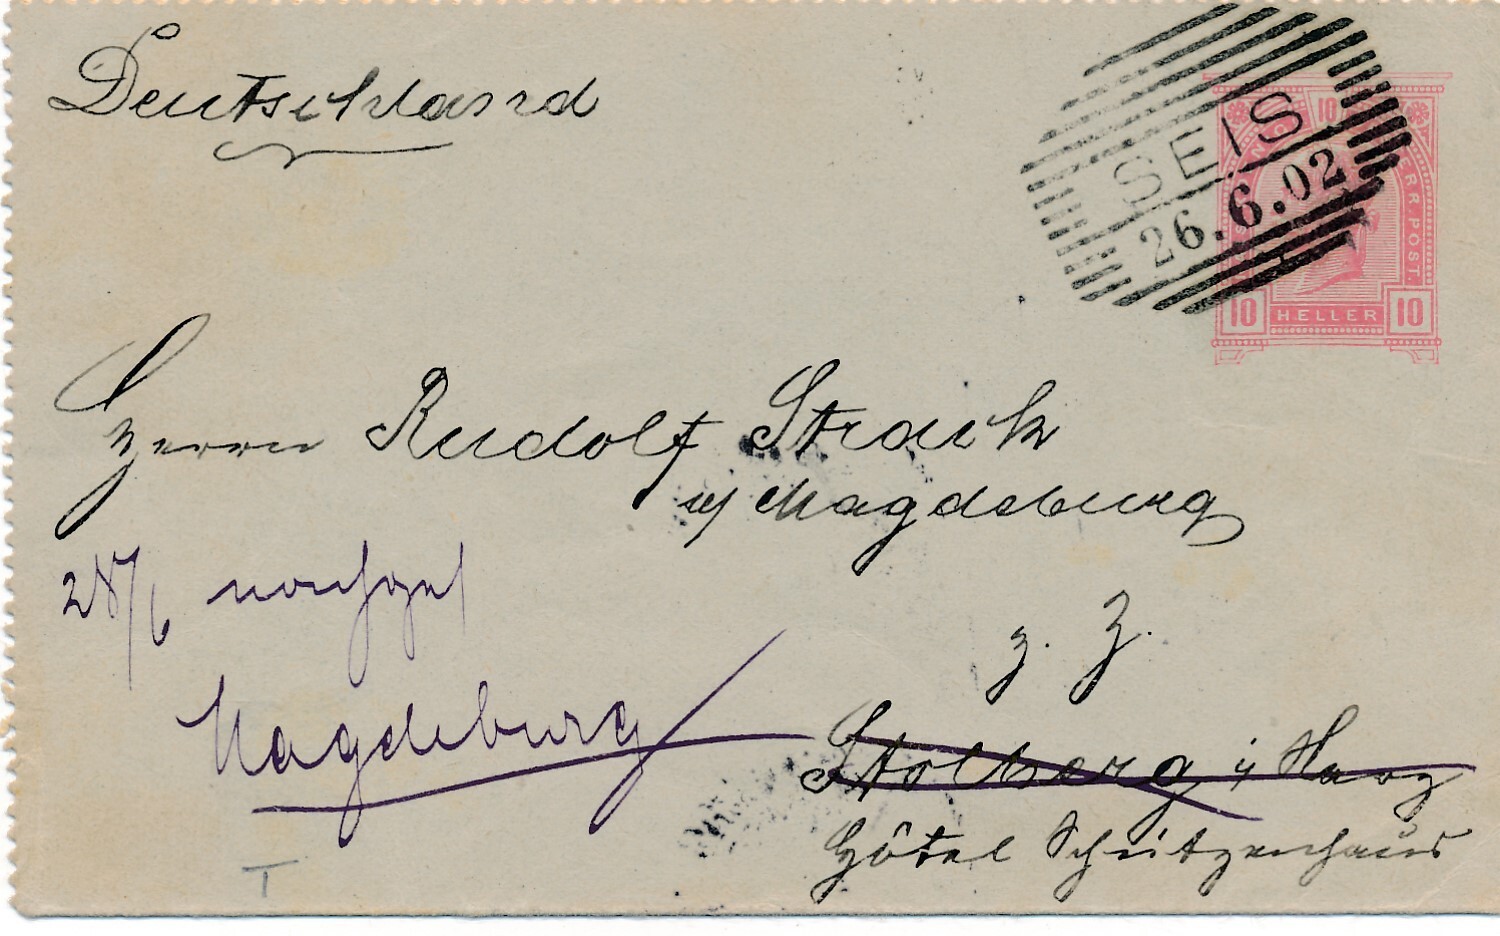 Deutschland
SEIS
26.6.02
10
ERR. POST.
10 HELLER 10
Herrn Rudolf Strack
a/ Magdeburg
28/6 nachges
Magdeburg
z. Z.
Stolberg i/ Harz
Hôtel Schützenhaus
T